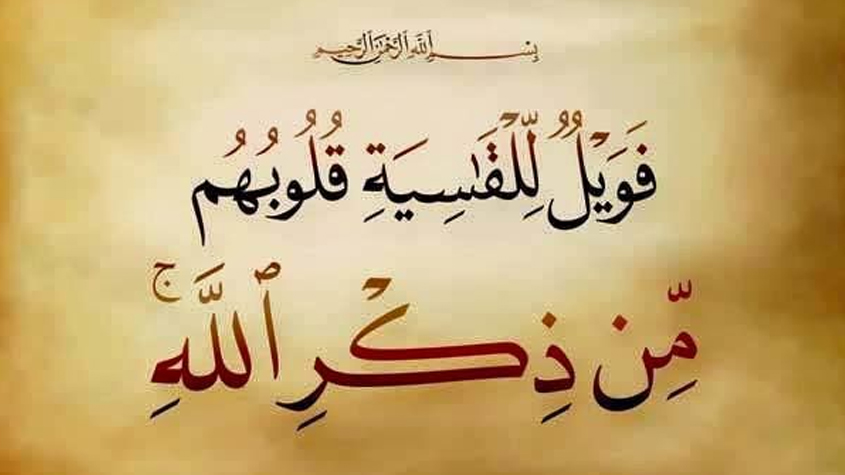 بِسْمِ ٱللَّهِ ٱلرَّحْمَٰنِ ٱلرَّحِيمِ
فَوَيْلٌ لِّلْقَٰسِيَةِ قُلُوبُهُم
مِّن ذِكْرِ ٱللَّهِ ۚ